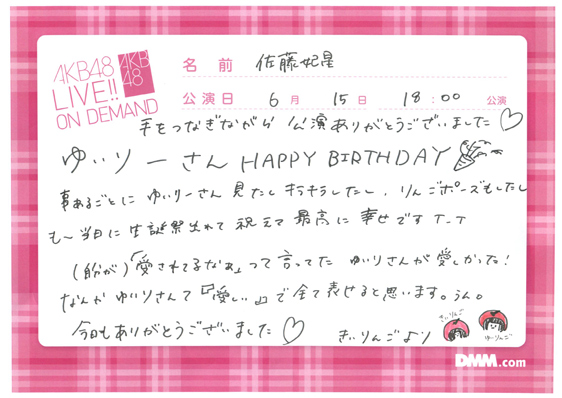 AKB48
LIVE!!
ON DEMAND
AKB
48
名前 佐藤妃星
公演日 6月 15日 18:00 公演
手をつなぎながら 公演ありがとうございました♡
ゆいりーさん HAPPY BIRTHDAY
事あるごとに ゆいりーさん 見たし キラキラしたし、りんごポーズもしたし
も〜当日に 生誕祭出れて 祝えて 最高に 幸せです T_T
(自分が)「愛されてるなぁ」って言ってた ゆいりさんが 愛しかった!
なんか ゆいりさんて『愛しい』で 全て表せると思います。うん。
今日もありがとうございました♡
きぃりんごより
きぃりんご
ゆーりんご
DMM.com